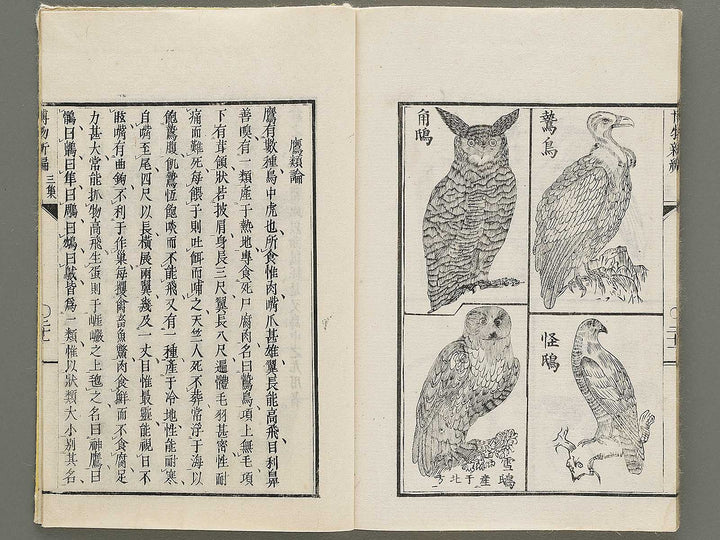 博物新編
鷙鳥
角鴟
怪鴟
雪鴟
產于北方
鷹類論
鷹有數種鳥中虎也所食惟肉嘴爪甚雄翼長能高飛目利鼻
善嗅有一類產于熱地專食死尸腐肉名曰鷙鳥項上無毛項
下有茸領狀若披肩身長三尺翼長八尺遍體毛羽甚密性耐
痛而難死每餵子則吐餌而哺之天竺人死不葬常浮于海以
飽鷙腹飢鷙恆飽啖而不能飛又有一種產于冷地性能耐寒
自嘴至尾四尺以長橫展兩翼幾及一丈目惟最靈能視日不
眩嘴有曲鉤不利于作巢每攫禽畜魚鱉肉食鮮而不食腐足
力甚大常能抓物高飛生蛋則于崕巘之上毬之名曰神鷹曰
鶻曰鷂曰隼曰鵰曰鷂曰鳶皆為一類惟以狀類大小別其名
博物新編
三集